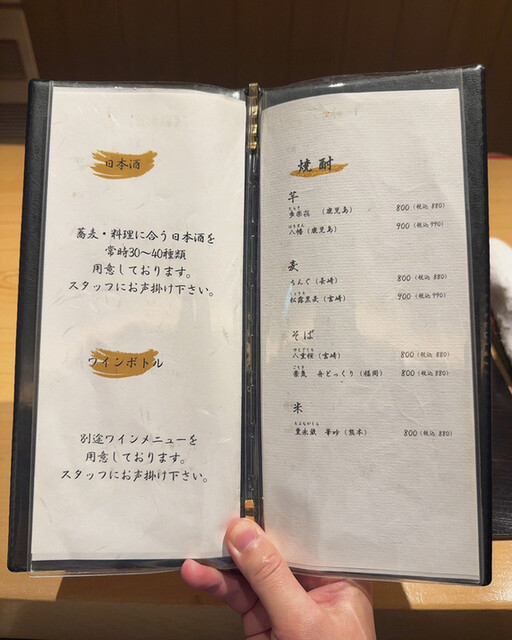 日本酒
蕎麦・料理に合う日本酒を
常時30〜40種類
用意しております。
スタッフにお声掛け下さい。
ワインボトル
別途ワインメニューを
用意しております。
スタッフにお声掛け下さい。
焼酎
芋
(鹿児島) 800 (税込 880)
八幡 (鹿児島) 900 (税込 990)
麦
ちんぐ (長崎) 800 (税込 880)
松露黒麦 (宮崎) 900 (税込 990)
そば
八重桜 (宮崎) 800 (税込 880)
舟どっくり (福岡) 800 (税込 880)
米
豊永蔵 華吟 (熊本) 800 (税込 880)